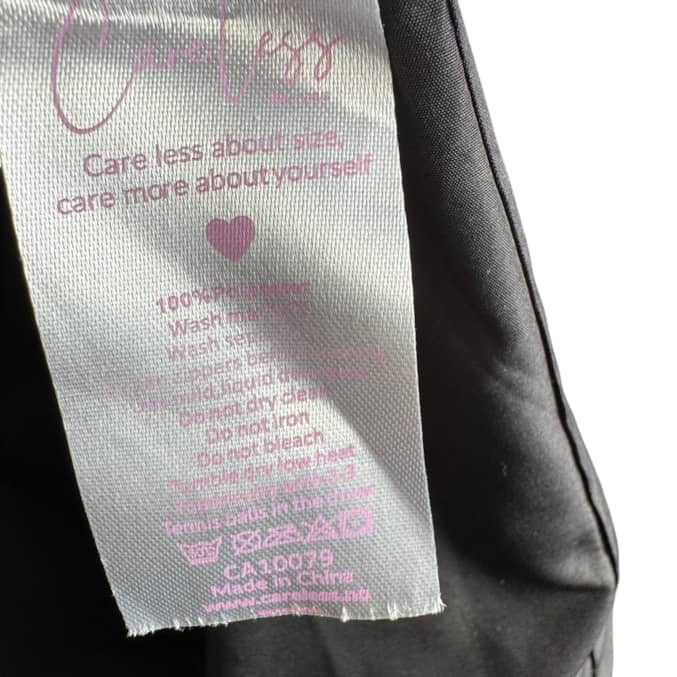 Care Less
Care less about size,
care more about yourself
100% Polyester
Wash
Wash
zippers
mild liquid
Do not dry clean
Do not iron
Do not bleach
Tumble dry low heat
dry with 2-3
Tennis balls in the dryer
CA10079
Made in China